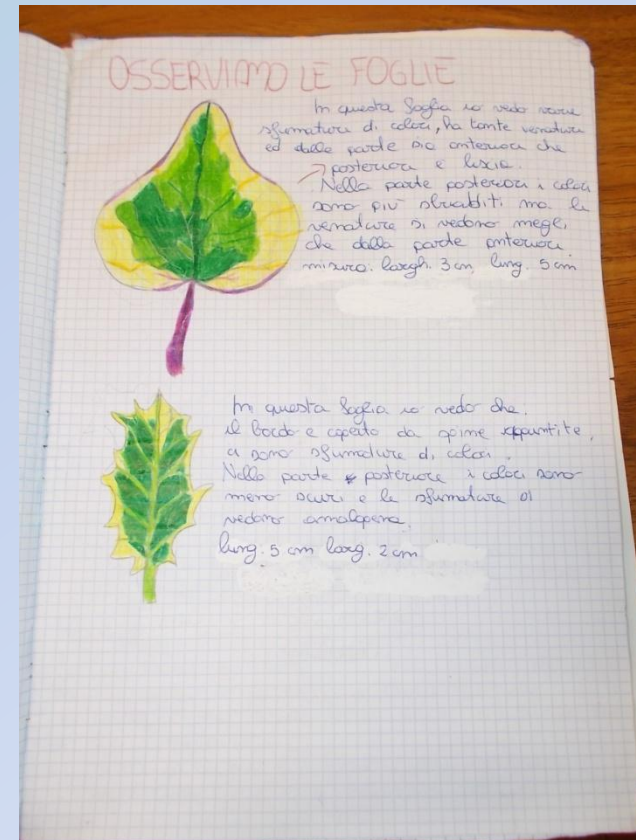 OSSERVIAMO LE FOGLIE
In questa foglia io vedo varie
sfumature di colori, ha tante venature
ed dalla parte sia anteriore che
posteriore è liscia.
Nella parte posteriore i colori
sono più sbiaditi ma le
venature si vedono megli
che dalla parte anteriore.
misura: largh. 3 cm lung. 5 cm
In questa foglia io vedo che
il bordo è coperto da spine appuntite,
ci sono sfumature di colori.
Nella parte posteriore i colori sono
meno scuri e le sfumature si
vedono amalapena.
lung. 5 cm larg. 2 cm